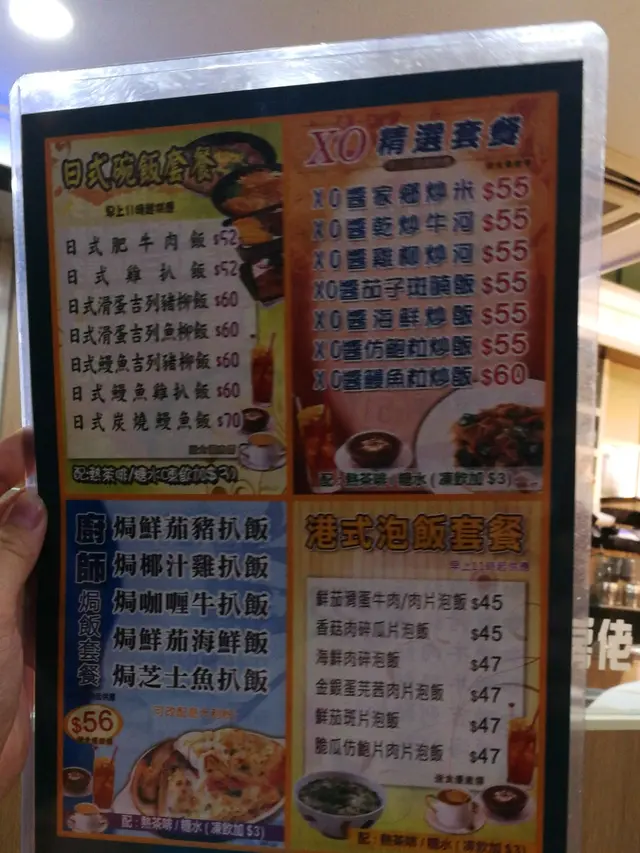 日式碗飯套餐
早上11時起供應
日式肥牛肉飯 $52
日式雞扒飯 $52
日式滑蛋吉列豬柳飯 $60
日式滑蛋吉列魚柳飯 $60
日式鰻魚吉列豬柳飯 $60
日式鰻魚雞扒飯 $60
日式炭燒鰻魚飯 $70
配:熱茶啡/糖水(凍飲加$3)
XO精選套餐
XO醬家鄉炒米 $55
XO醬乾炒牛河 $55
XO醬雞柳炒河 $55
XO醬茄子斑腩飯 $55
XO醬海鮮炒飯 $55
XO醬仿鮑粒炒飯 $55
XO醬鰻魚粒炒飯 $60
配:熱茶啡/糖水(凍飲加$3)
廚師焗飯套餐
焗鮮茄豬扒飯
焗椰汁雞扒飯
焗咖喱牛扒飯
焗鮮茄海鮮飯
焗芝士魚扒飯
$56
配:熱茶啡/糖水(凍飲加$3)
港式泡飯套餐
早上11時起供應
鮮茄滑蛋牛肉/肉片泡飯 $45
香菇肉碎瓜片泡飯 $45
海鮮肉碎泡飯 $47
金銀蛋芫茜肉片泡飯 $47
鮮茄斑片泡飯 $47
脆瓜仿鮑片肉片泡飯 $47
配:熱茶啡/糖水(凍飲加$3)